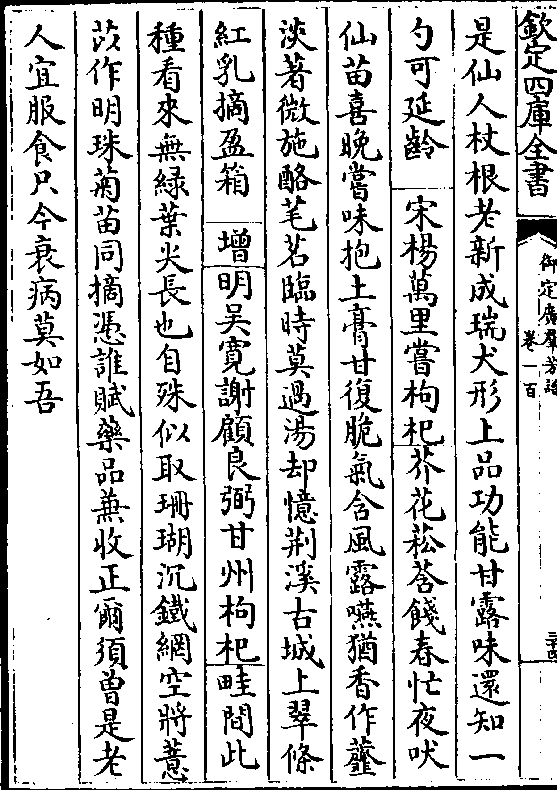 欽定四庫全書
御定廣羣芳譜
卷一百
三十四
是仙人杖根老新成瑞犬形上品功能甘露味還知一
勺可延齡　宋楊萬里嘗枸杞芥花菘䓤餞春忙夜吠
仙苗喜晚嘗味抱土膏甘復脆氣含風露嚥猶香作虀
淡著微施酪芼茗臨時莫過湯却憶荆溪古城上翠條
紅乳摘盈箱　增明吳寛謝顧良弼甘州枸杞畦間此
種看來無緑葉尖長也自殊似取珊瑚沉鐵網空將薏
苡作明珠菊苗同摘憑誰賦藥品兼收正爾須曽是老
人宜服食只今衰病莫如吾